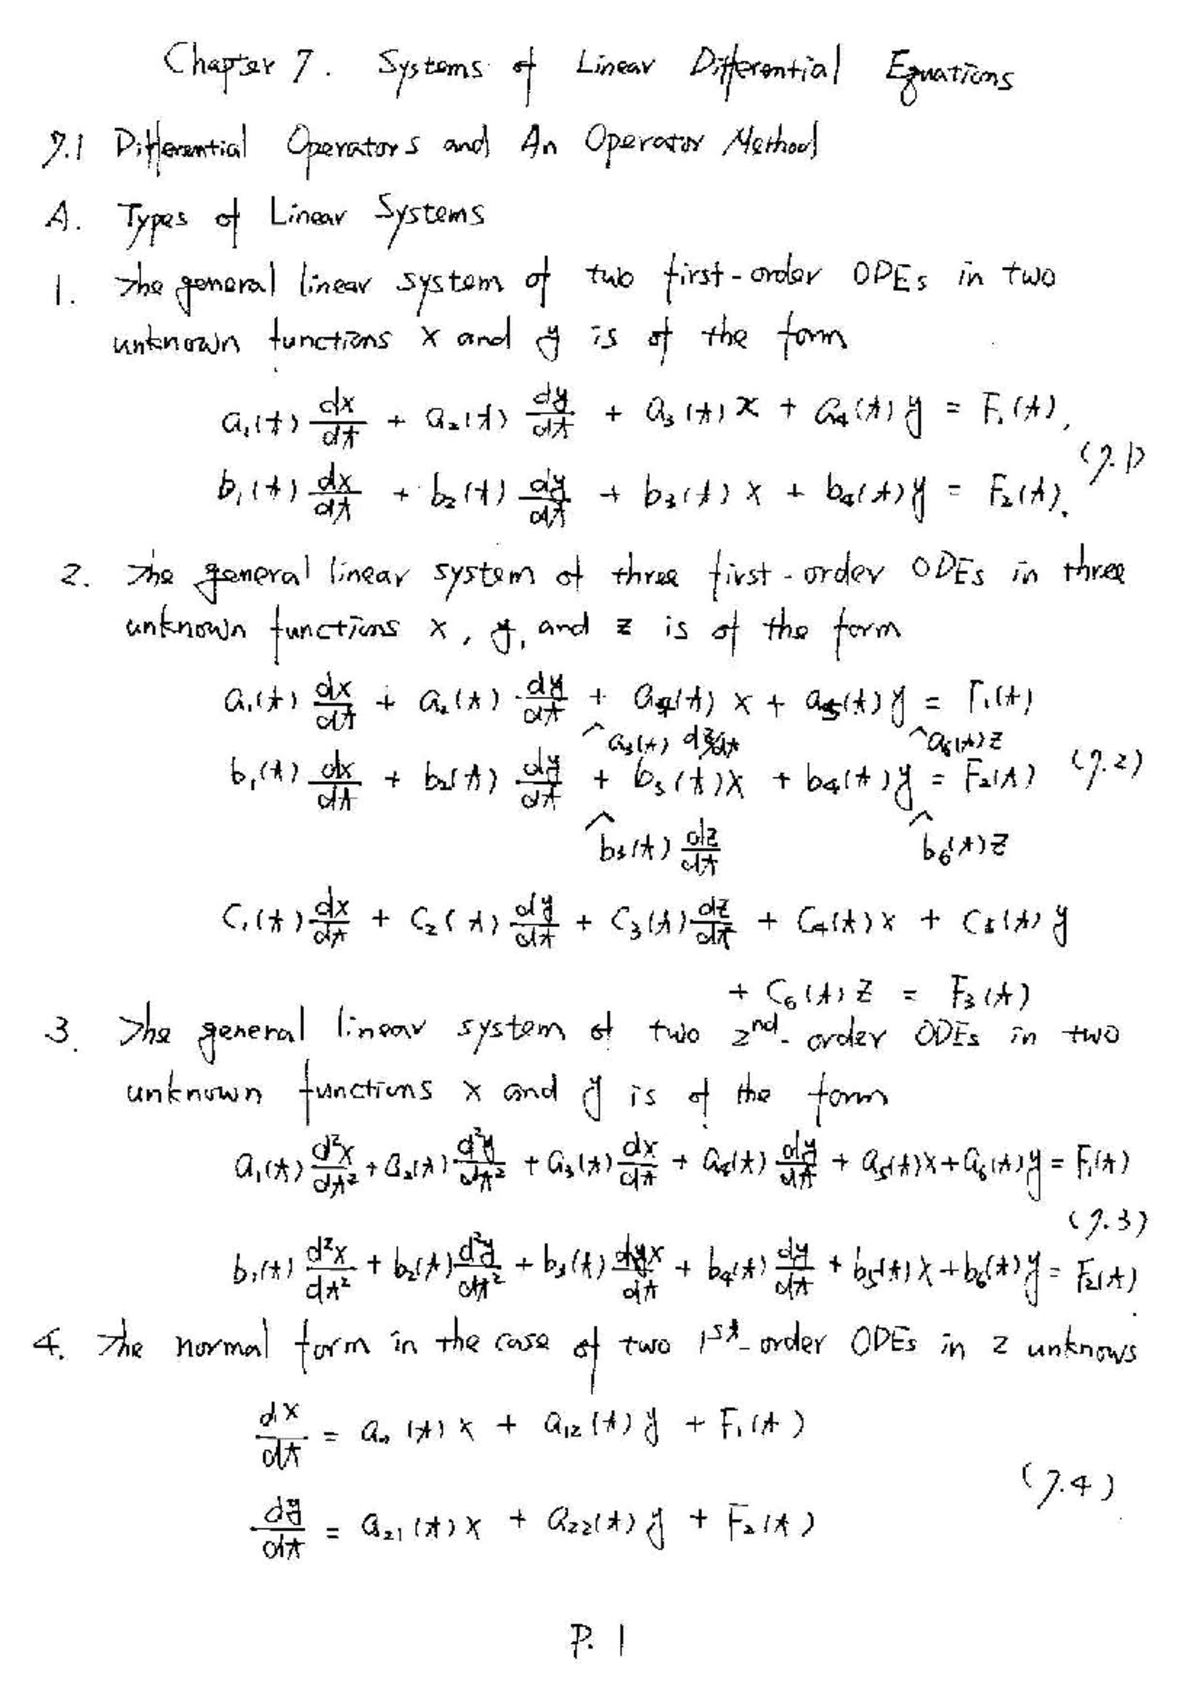 Chapter 7. Systems of Linear Differential Equations
7.1 Differential Operators and An Operator Method
A. Types of Linear Systems
1. The general linear system of two first-order ODEs in two
unknown functions x and y is of the form
a₁(t) dx/dt + a₂(t) dy/dt + a₃(t) x + a₄(t) y = F₁(t),
(7.1)
b₁(t) dx/dt + b₂(t) dy/dt + b₃(t) x + b₄(t) y = F₂(t).
2. The general linear system of three first-order ODEs in three
unknown functions x, y, and z is of the form
a₁(t) dx/dt + a₂(t) dy/dt + a₄(t) x + a₅(t) y = F₁(t)
^a₃(t) dz/dt ^a₆(t) z
b₁(t) dx/dt + b₂(t) dy/dt + b₃(t) x + b₄(t) y = F₂(t) (7.2)
^b₃(t) dz/dt ^b₆(t) z
C₁(t) dx/dt + C₂(t) dy/dt + C₃(t) dz/dt + C₄(t) x + C₅(t) y
+ C₆(t) z = F₃(t)
3. The general linear system of two 2nd-order ODEs in two
unknown functions x and y is of the form
a₁(t) d²x/dt² + a₂(t) d²y/dt² + a₃(t) dx/dt + a₄(t) dy/dt + a₅(t)x + a₆(t)y = F₁(t)
(7.3)
b₁(t) d²x/dt² + b₂(t) d²y/dt² + b₃(t) dx/dt + b₄(t) dy/dt + b₅(t)x + b₆(t)y = F₂(t)
4. The normal form in the case of two 1st-order ODEs in 2 unknows
dx/dt = a₁₁(t) x + a₁₂(t) y + F₁(t)
(7.4)
dy/dt = a₂₁(t) x + a₂₂(t) y + F₂(t)
P. 1